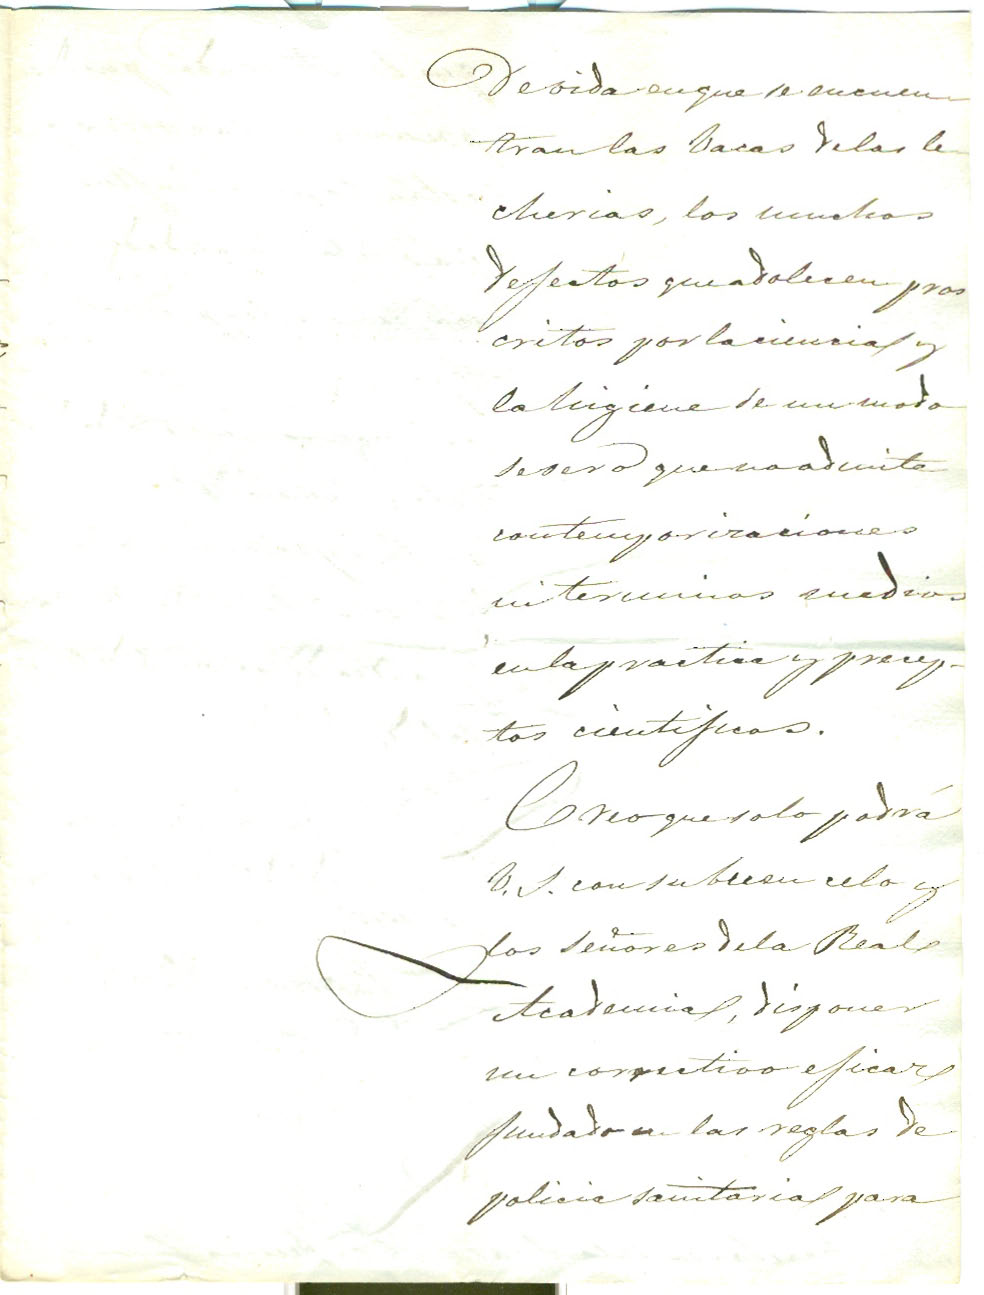 De vida en que se encuen
tran las Vacas de las le
cherias, los muchos
defectos que adolecen pros
critos por la ciencia y
la higiene de un modo
severo que no admite
contemporizaciones
ni terminos medios
en la practica y precep-
tos cientificos.
Creo que solo podrá
V. S. con su buen celo y
los señores de la Real
Academia, disponer
un correctivo eficaz
fundado en las reglas de
policia sanitaria para